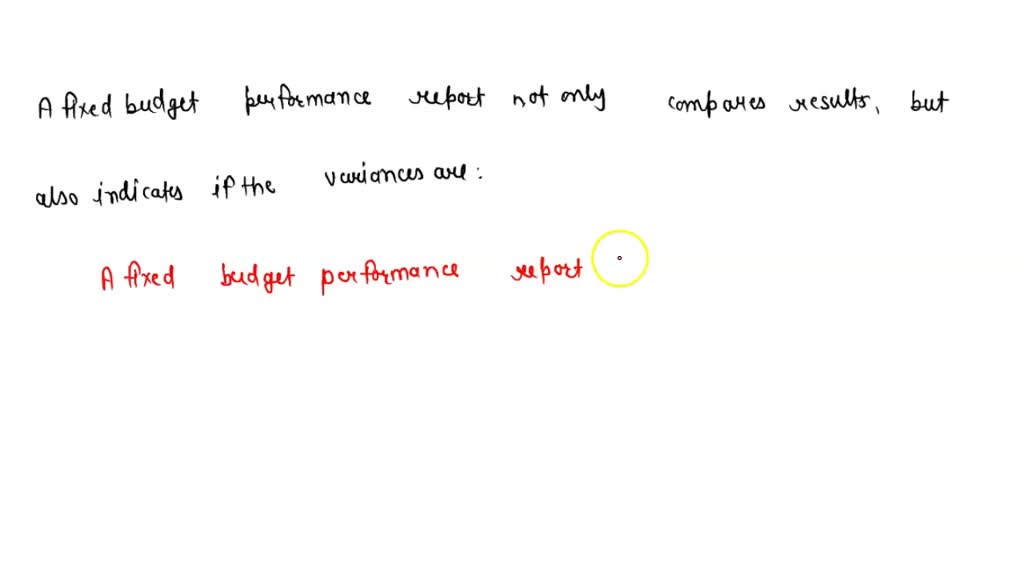 A fixed budget performance report not only compares results, but
also indicates if the variances are:
A fixed budget performance report